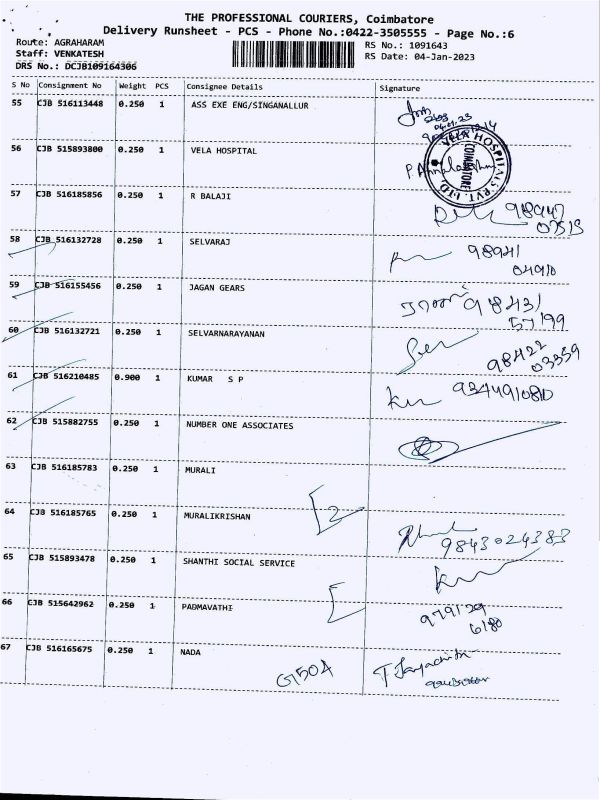 THE PROFESSIONAL COURIERS, Coimbatore
Delivery Runsheet - PCS - Phone No.:0422-3505555 - Page No.:6
Route: AGRAHARAM
Staff: VENKATESH
DRS No.: DCJB109164306
RS No.: 1091643
RS Date: 04-Jan-2023
S No Consignment No Weight PCS Consignee Details Signature
55 CJB 516113448 0.250 1 ASS EXE ENG/SINGANALLUR
56 CJB 515893800 0.250 1 VELA HOSPITAL
VELA HOSPITALS PVT. LTD.
COIMBATORE
57 CJB 516185856 0.250 1 R BALAJI
98947
07515
58 CJB 516132728 0.250 1 SELVARAJ
98941
04910
59 CJB 516155456 0.250 1 JAGAN GEARS
98431
57199
60 CJB 516132721 0.250 1 SELVARNARAYANAN
98422
03359
61 CJB 516210485 0.900 1 KUMAR S P
9344910810
62 CJB 515882755 0.250 1 NUMBER ONE ASSOCIATES
63 CJB 516185783 0.250 1 MURALI
2
64 CJB 516185765 0.250 1 MURALIKRISHAN
9843024383
65 CJB 515893478 0.250 1 SHANTHI SOCIAL SERVICE
66 CJB 515642962 0.250 1 PADMAVATHI
979129
6180
67 CJB 516165675 0.250 1 NADA
G150A